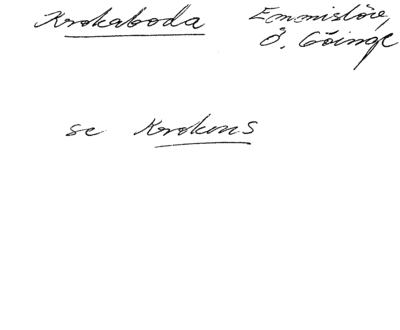 Krokaboda Emmislöv,
Ö. Göinge
se Krokens